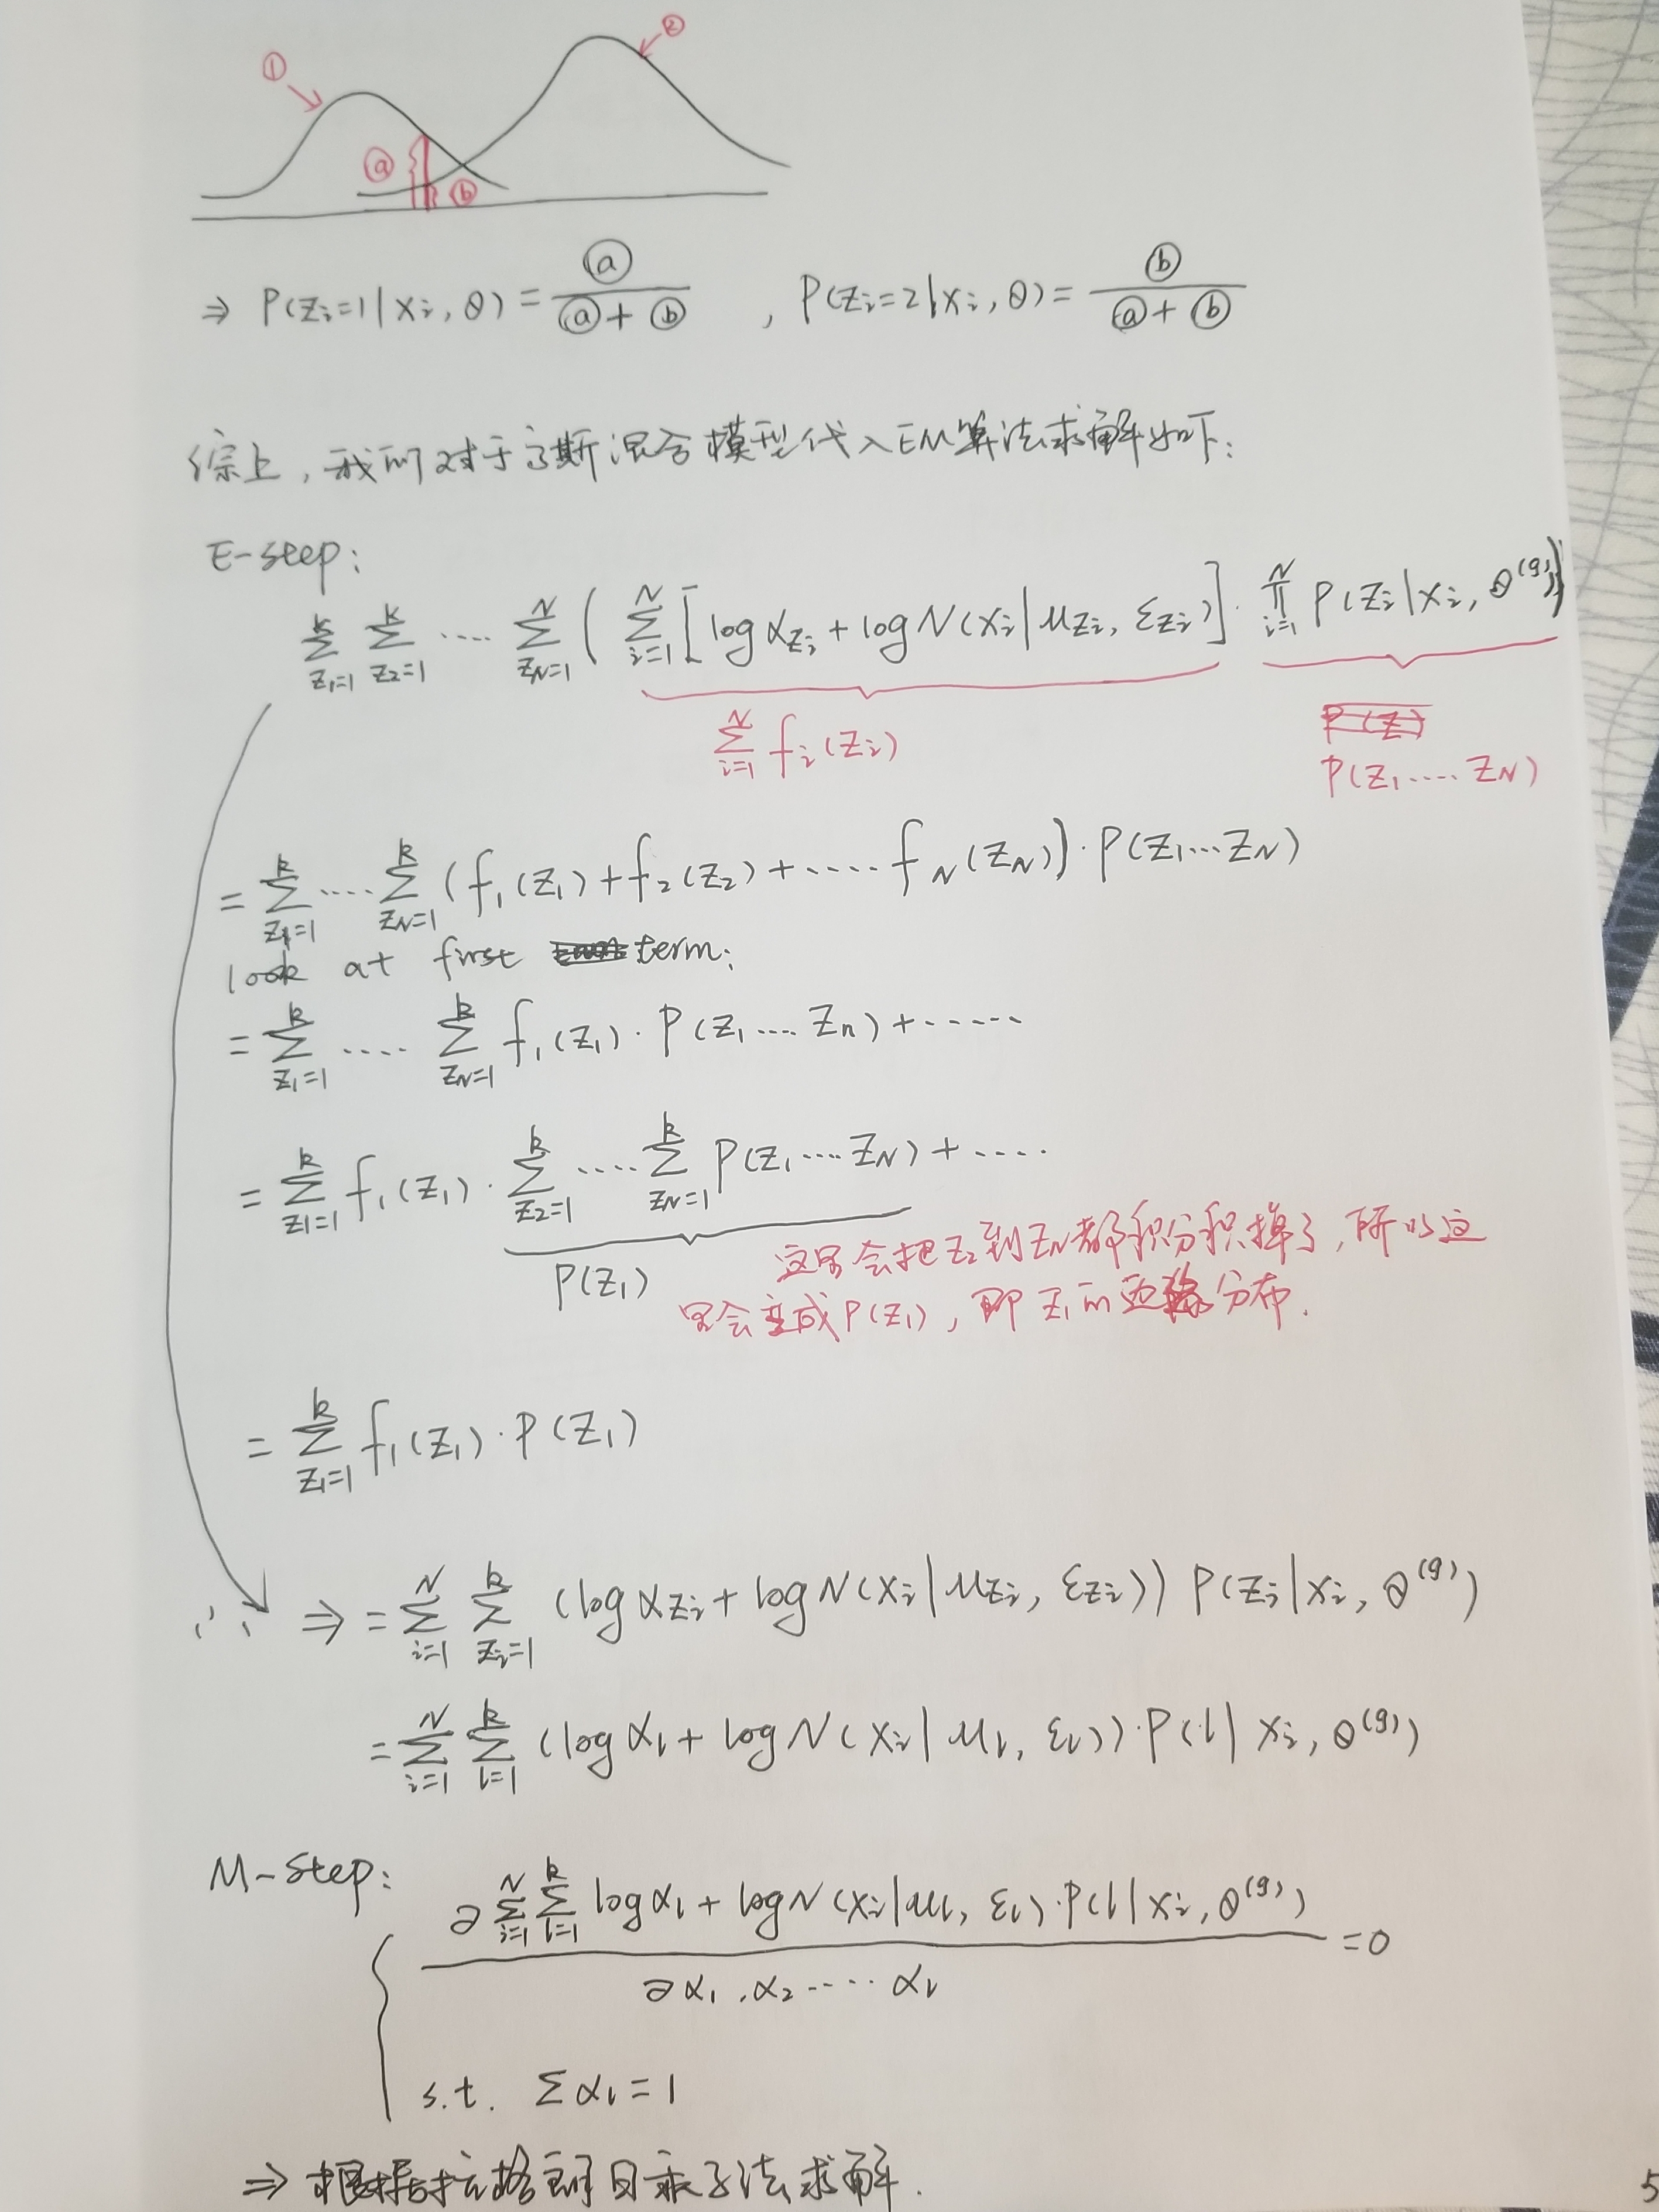 ① ②
ⓐ ⓑ
⇒ P(Zi=1|Xi, θ) = ⓐ/(ⓐ+ⓑ) , P(Zi=2|Xi, θ) = ⓑ/(ⓐ+ⓑ)
综上,我们对于高斯混合模型代入EM算法求解如下:
E-step:
∑_{Z1=1}^{k} ∑_{Z2=1}^{k} ···· ∑_{ZN=1}^{N} ( ∑_{i=1}^{N} [log α_{Zi} + log N(Xi|μ_{Zi}, Σ_{Zi})] · ∏_{i=1}^{N} P(Zi|Xi, θ^(g)) )
∑_{i=1}^{N} fi(Zi)
P(Z1····ZN)
= ∑_{Z1=1}^{k} ···· ∑_{ZN=1}^{k} (f1(Z1) + f2(Z2) + ···· fN(ZN)) · P(Z1···ZN)
look at first term:
= ∑_{Z1=1}^{k} ···· ∑_{ZN=1}^{k} f1(Z1) · P(Z1····Zn) + ·····
= ∑_{Z1=1}^{k} f1(Z1) · ∑_{Z2=1}^{k} ···· ∑_{ZN=1}^{k} P(Z1····ZN) + ····
P(Z1) 这里会把Z2到ZN都积分积掉了,所以这
里会变成P(Z1),即Z1的边缘分布.
= ∑_{Z1=1}^{k} f1(Z1) · P(Z1)
∴ ⇒ = ∑_{i=1}^{N} ∑_{Zi=1}^{k} (log α_{Zi} + log N(Xi|μ_{Zi}, Σ_{Zi})) P(Zi|Xi, θ^(g))
= ∑_{i=1}^{N} ∑_{l=1}^{k} (log αl + log N(Xi|μl, Σl)) · P(l|Xi, θ^(g))
M-Step:
∂ ∑_{i=1}^{N} ∑_{l=1}^{k} log αl + log N(Xi|μl, Σl) · P(l|Xi, θ^(g)) / ∂α1, α2 ····· αl = 0
s.t. ∑αl = 1
⇒ 根据拉格朗日乘子法求解.
5